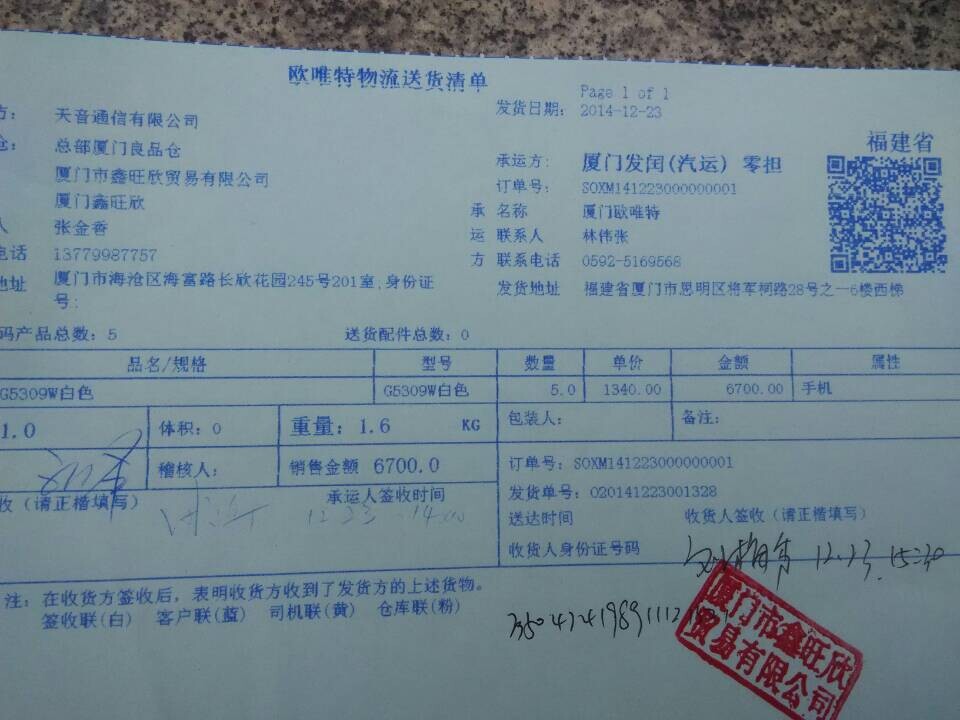 欧唯特物流送货清单
Page 1 of 1
发货日期: 2014-12-23
方: 天音通信有限公司
仓: 总部厦门良品仓
福建省
厦门市鑫旺欣贸易有限公司
承运方: 厦门发闰(汽运) 零担
厦门鑫旺欣
订单号: SOXM141223000000001
人 张金香
承 名称 厦门欧唯特
电话 13779987757
运 联系人 林伟张
地址 厦门市海沧区海富路长欣花园245号201室;身份证
号:
方 联系电话 0592-5169568
发货地址 福建省厦门市思明区将军祠路28号之一6楼西梯
码产品总数: 5 送货配件总数: 0
品名/规格 型号 数量 单价 金额 属性
G5309W白色 G5309W白色 5.0 1340.00 6700.00 手机
1.0 体积: 0 重量: 1.6 KG 包装人: 备注:
稽核人: 销售金额 6700.0 订单号: SOXM141223000000001
收(请正楷填写) 承运人签收时间 发货单号: 020141223001328
12.23 14:00
送达时间 收货人签收(请正楷填写)
收货人身份证号码 12.23. 15:30
注: 在收货方签收后, 表明收货方收到了发货方的上述货物。
签收联(白) 客户联(蓝) 司机联(黄) 仓库联(粉)
厦门市鑫旺欣
贸易有限公司